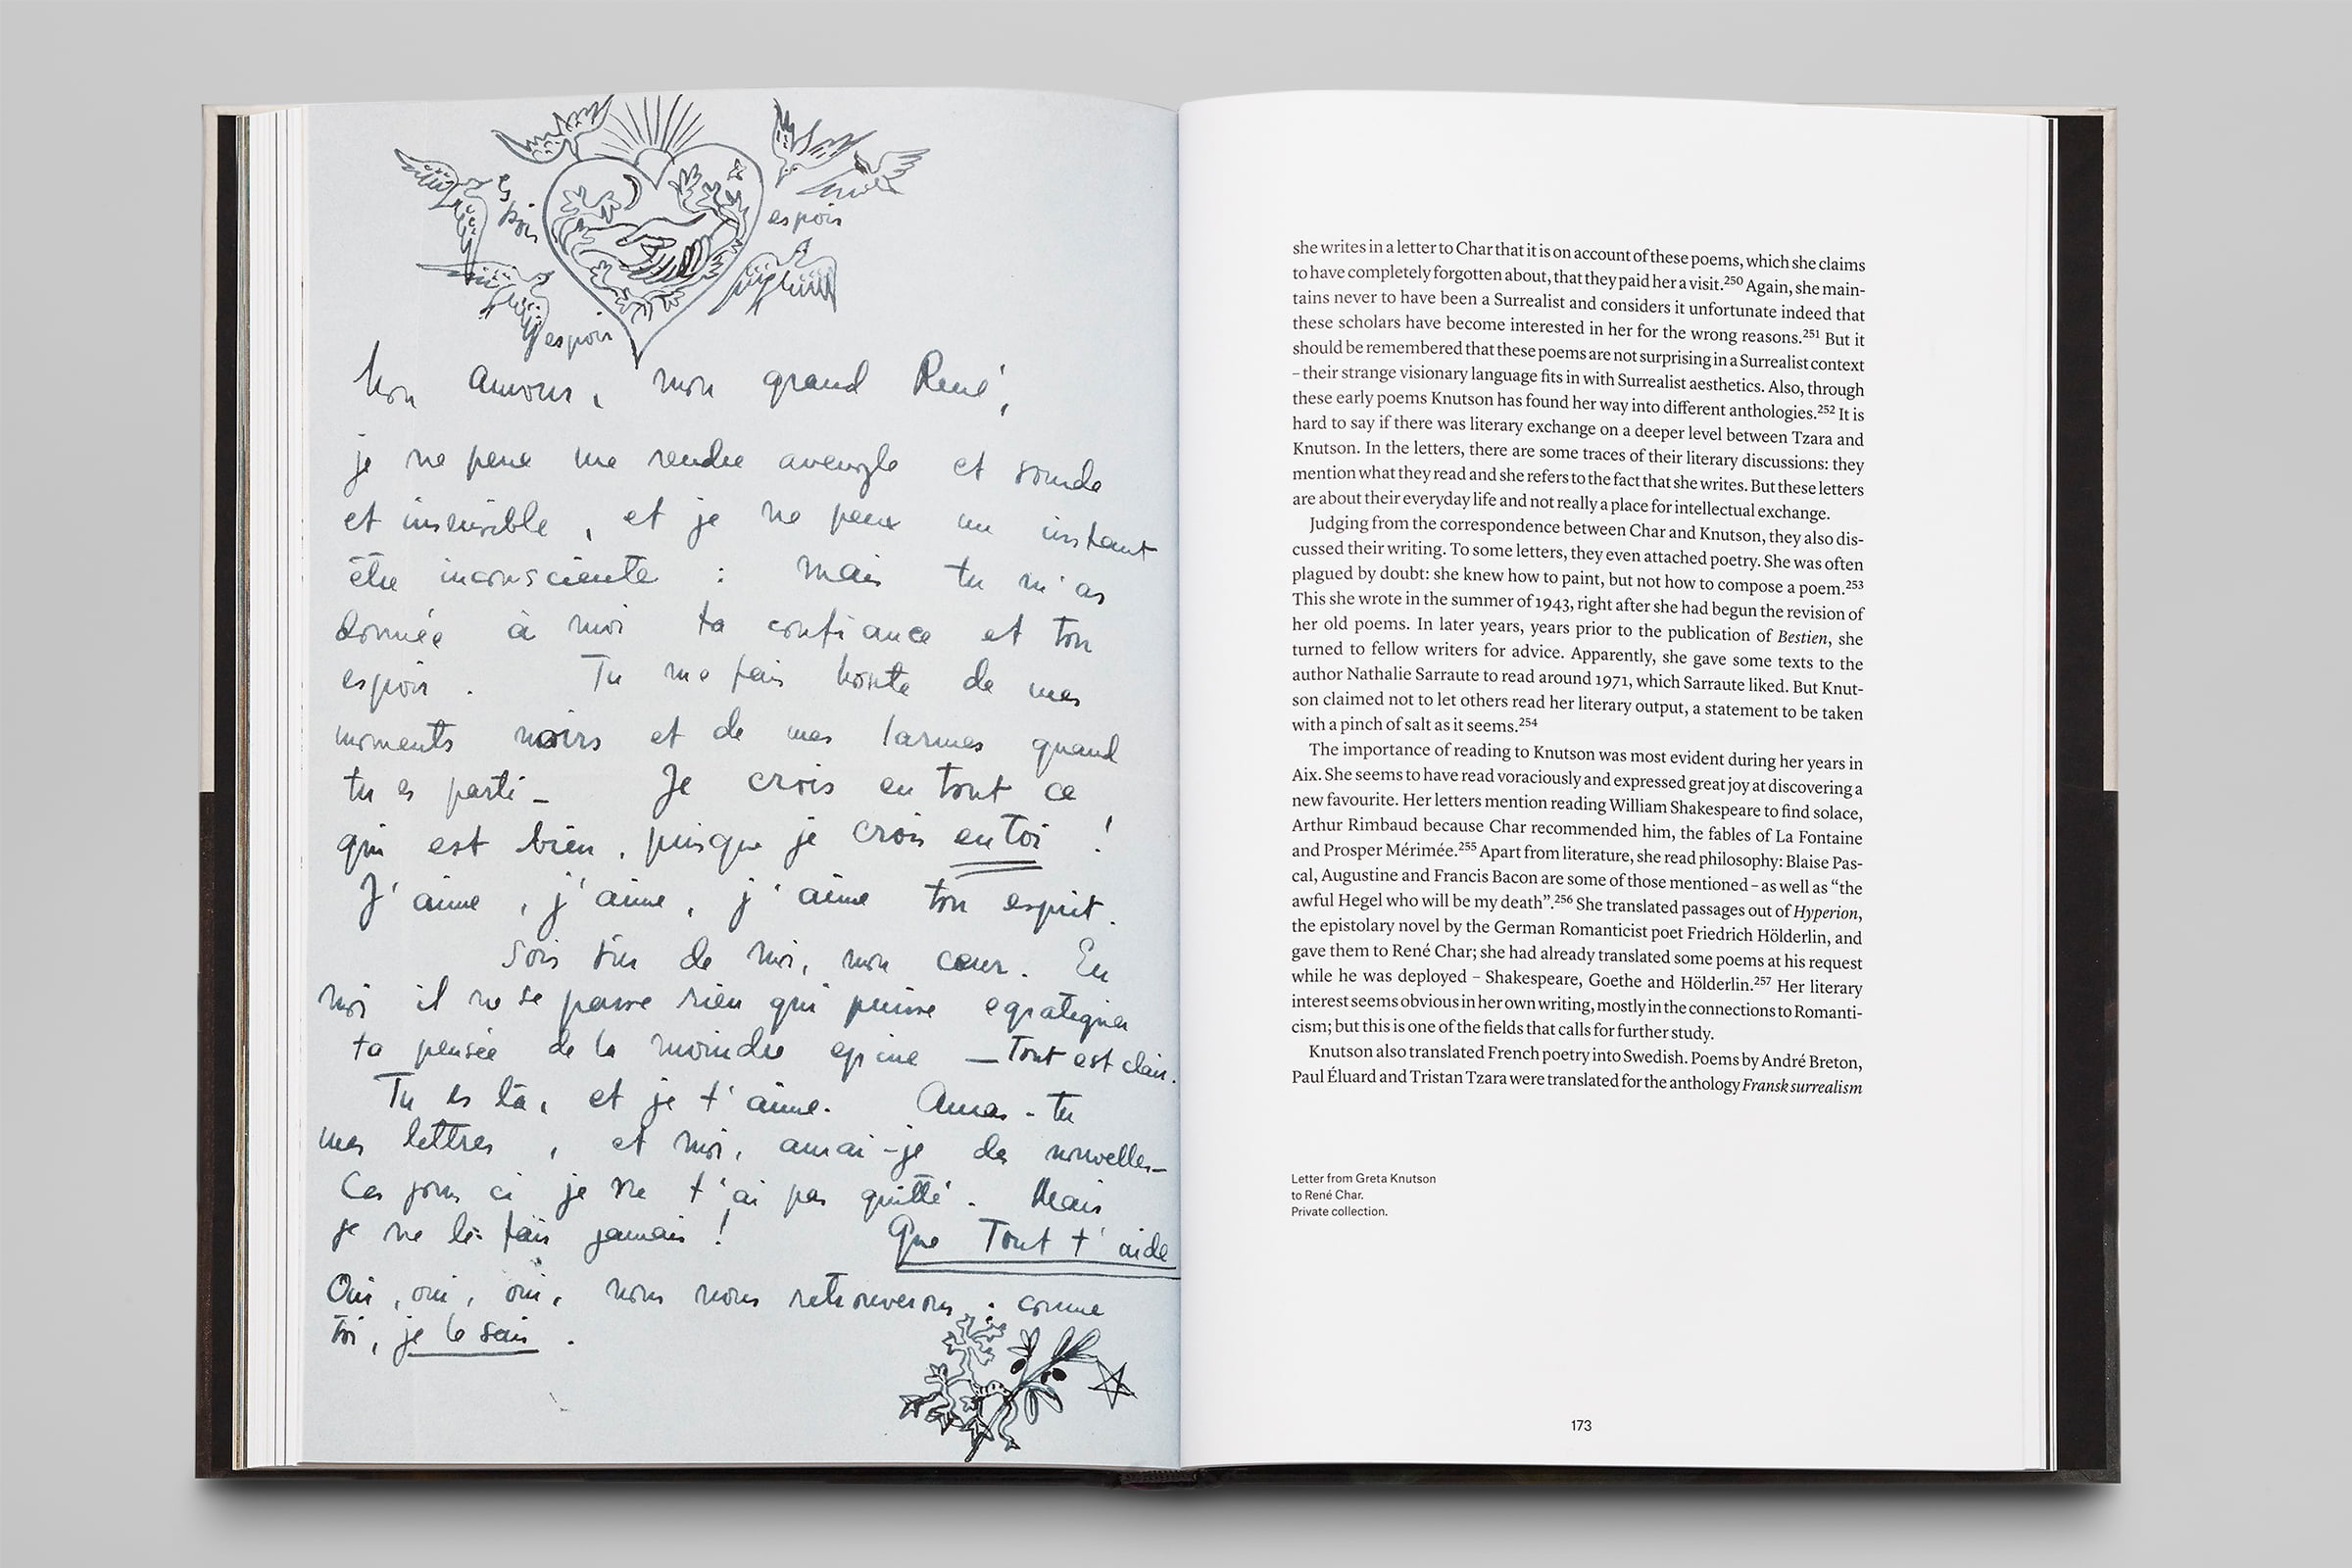 es
poir
espoir
espoir
Mon amour, mon grand René,
je ne peux me rendre aveugle et sourde
et insensible, et je ne peux un instant
être inconsciente : mais tu m'as
donnée à moi ta confiance et ton
espoir. Tu me fais honte de mes
moments noirs et de mes larmes quand
tu es parti – Je crois en tout ce
qui est bien, puisque je crois en toi !
J'aime, j'aime, j'aime ton esprit.
Sois sûr de moi, mon cœur. En
moi il ne se passe rien qui puisse egratigner
ta pensée de la moindre epine — Tout est clair.
Tu es là, et je t'aime. Auras-tu
mes lettres, et moi, aurai-je des nouvelles –
Ces jours ci je ne t'ai pas quitté. Mais
je ne le fais jamais ! Que Tout t'aide
Oui, oui, oui, nous nous retrouverons : comme
toi, je le sais.
she writes in a letter to Char that it is on account of these poems, which she claims
to have completely forgotten about, that they paid her a visit.250 Again, she main-
tains never to have been a Surrealist and considers it unfortunate indeed that
these scholars have become interested in her for the wrong reasons.251 But it
should be remembered that these poems are not surprising in a Surrealist context
– their strange visionary language fits in with Surrealist aesthetics. Also, through
these early poems Knutson has found her way into different anthologies.252 It is
hard to say if there was literary exchange on a deeper level between Tzara and
Knutson. In the letters, there are some traces of their literary discussions: they
mention what they read and she refers to the fact that she writes. But these letters
are about their everyday life and not really a place for intellectual exchange.
Judging from the correspondence between Char and Knutson, they also dis-
cussed their writing. To some letters, they even attached poetry. She was often
plagued by doubt: she knew how to paint, but not how to compose a poem.253
This she wrote in the summer of 1943, right after she had begun the revision of
her old poems. In later years, years prior to the publication of Bestien, she
turned to fellow writers for advice. Apparently, she gave some texts to the
author Nathalie Sarraute to read around 1971, which Sarraute liked. But Knut-
son claimed not to let others read her literary output, a statement to be taken
with a pinch of salt as it seems.254
The importance of reading to Knutson was most evident during her years in
Aix. She seems to have read voraciously and expressed great joy at discovering a
new favourite. Her letters mention reading William Shakespeare to find solace,
Arthur Rimbaud because Char recommended him, the fables of La Fontaine
and Prosper Mérimée.255 Apart from literature, she read philosophy: Blaise Pas-
cal, Augustine and Francis Bacon are some of those mentioned – as well as “the
awful Hegel who will be my death”.256 She translated passages out of Hyperion,
the epistolary novel by the German Romanticist poet Friedrich Hölderlin, and
gave them to René Char; she had already translated some poems at his request
while he was deployed – Shakespeare, Goethe and Hölderlin.257 Her literary
interest seems obvious in her own writing, mostly in the connections to Romanti-
cism; but this is one of the fields that calls for further study.
Knutson also translated French poetry into Swedish. Poems by André Breton,
Paul Éluard and Tristan Tzara were translated for the anthology Fransk surrealism
Letter from Greta Knutson
to René Char.
Private collection.
173